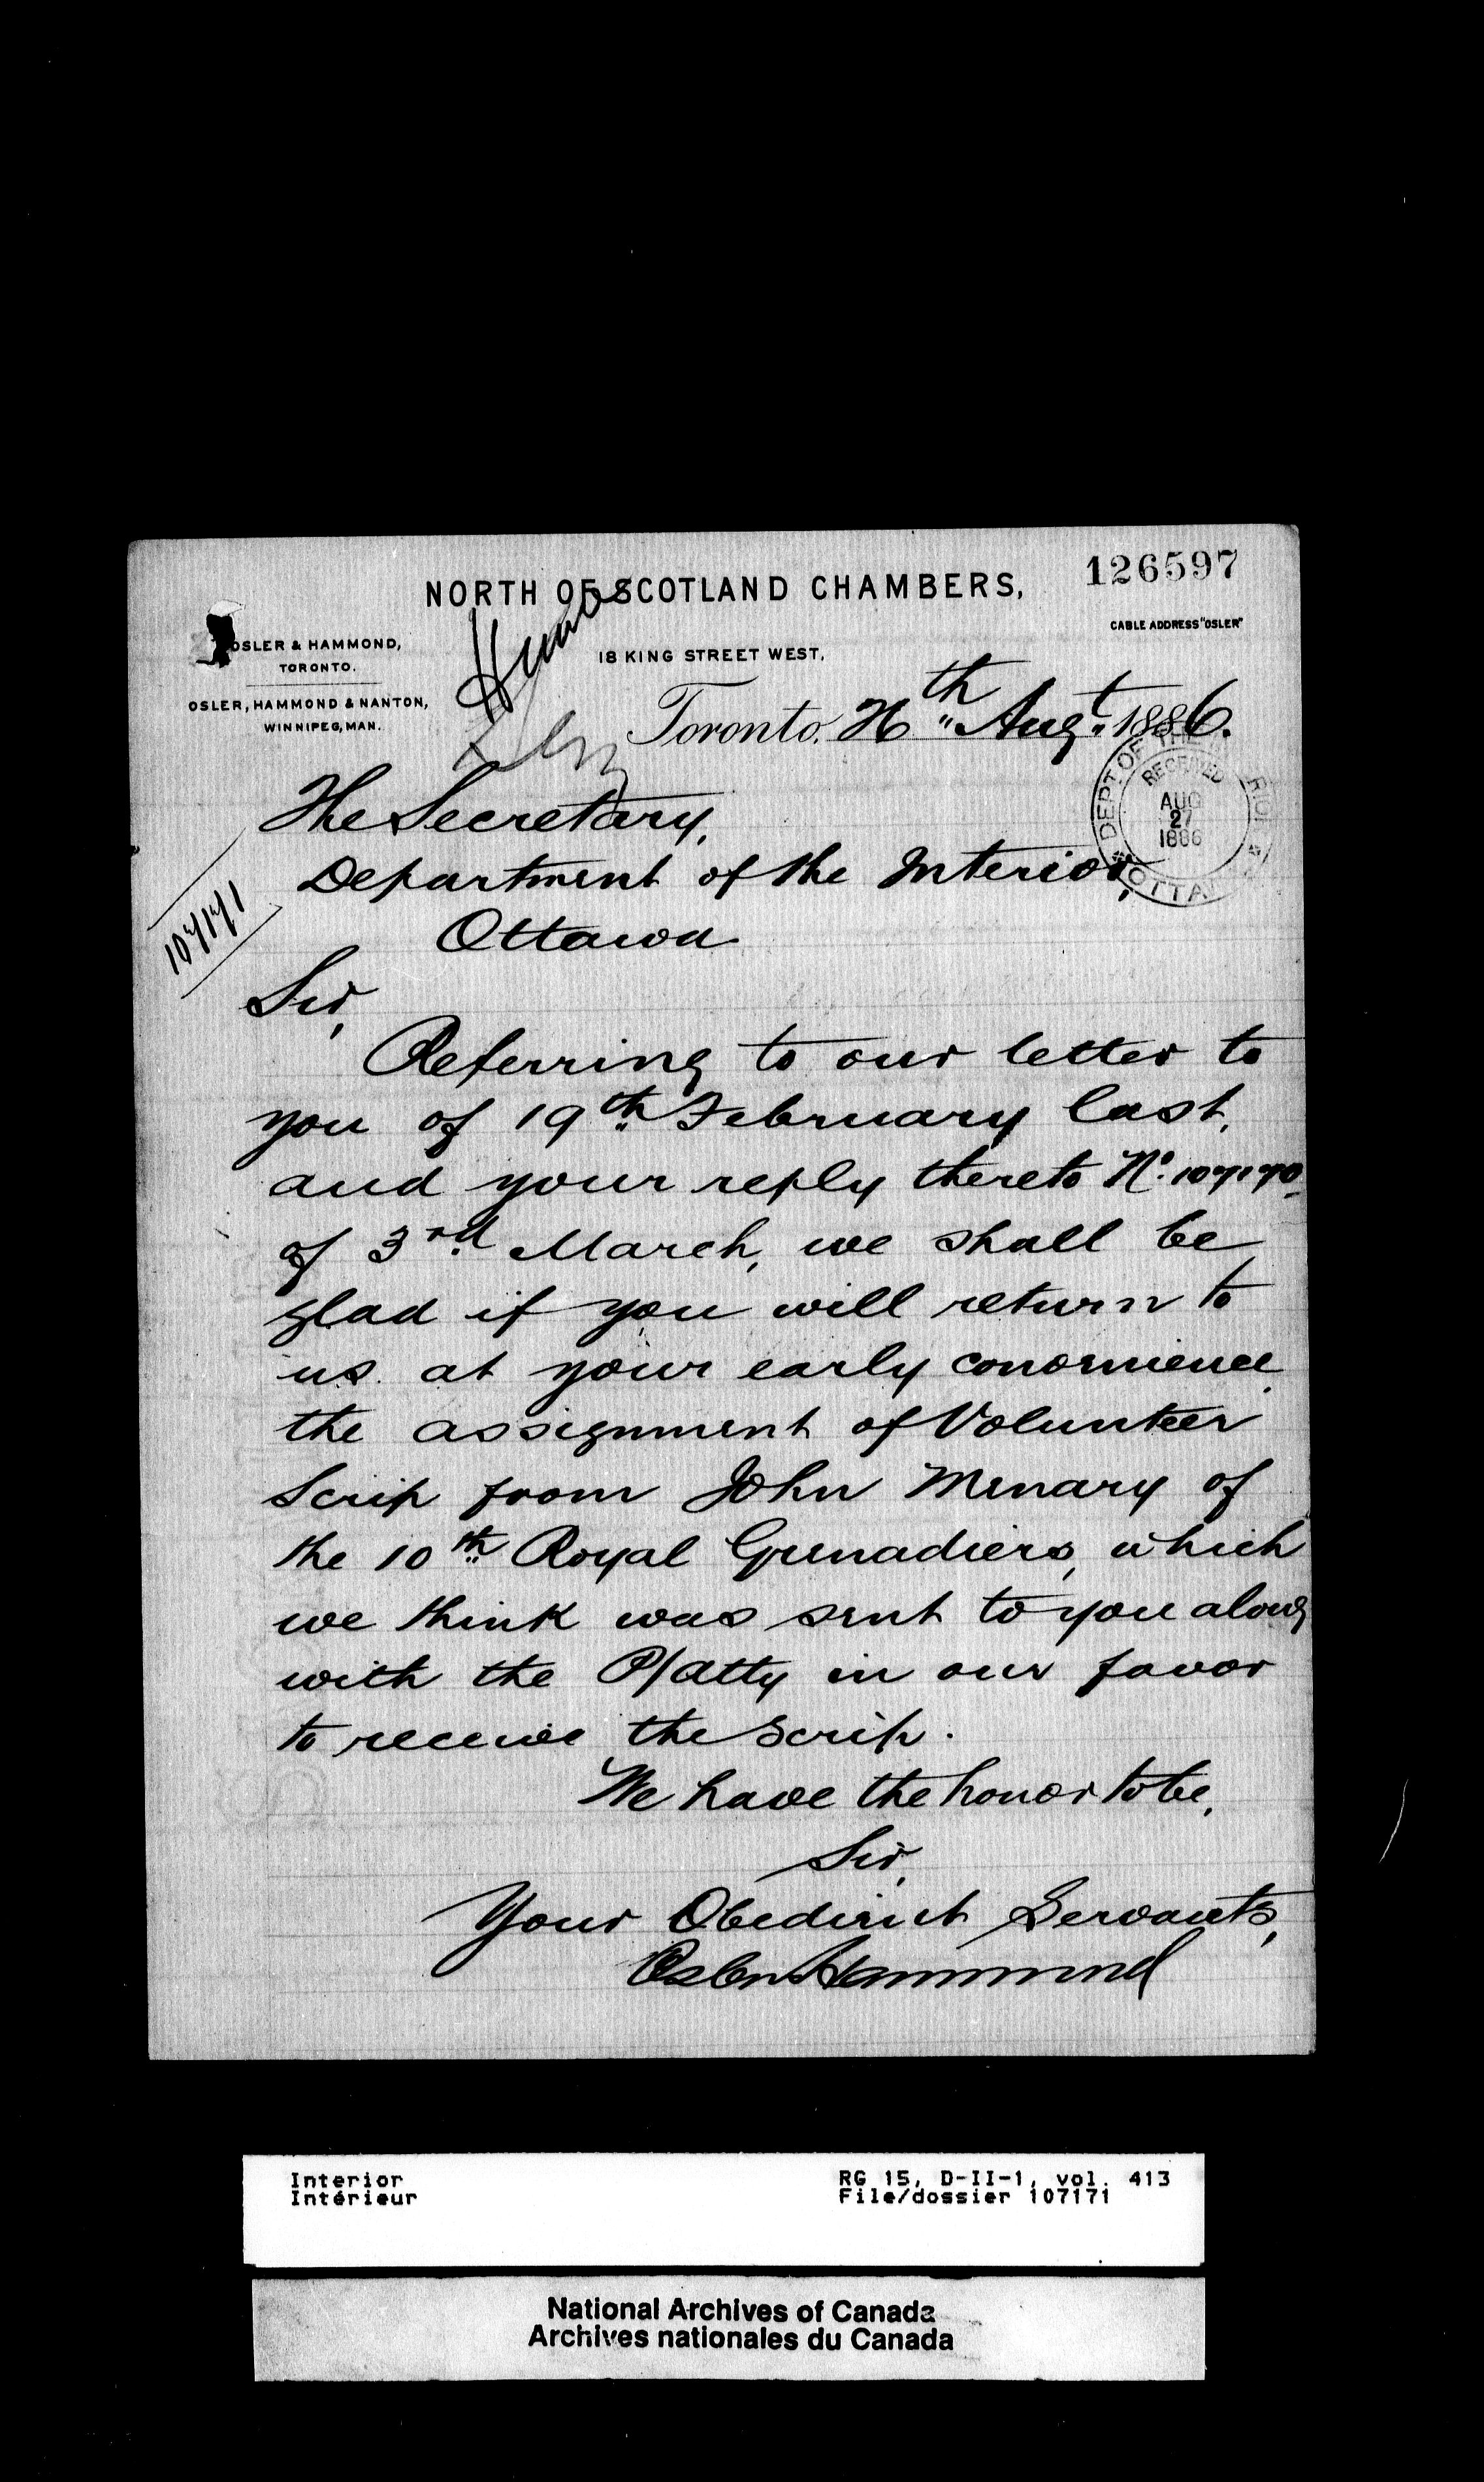 126597
NORTH OF SCOTLAND CHAMBERS,
CABLE ADDRESS "OSLER"
OSLER & HAMMOND,
TORONTO.
18 KING STREET WEST,
OSLER, HAMMOND & NANTON,
WINNIPEG, MAN.
Toronto, 26th Augt. 1886.
DEPT. OF THE
RECEIVED
AUG
27
1886
OTTA
The Secretary,
Department of the Interior,
107171
Ottawa
Sir,
Referring to our letter to
you of 19th February last,
and your reply thereto No. 107170
of 3rd March, we shall be
glad if you will return to
us at your early convenience
the assignment of Volunteer
Scrip from John Menary of
the 10th Royal Grenadiers, which
we think was sent to you along
with the P/Atty in our favor
to receive the Scrip.
We have the honor to be,
Sir,
Your Obedient Servants,
Osler Hammond
Interior
Intérieur
RG 15, D-II-1, vol. 413
File/dossier 107171
National Archives of Canada
Archives nationales du Canada